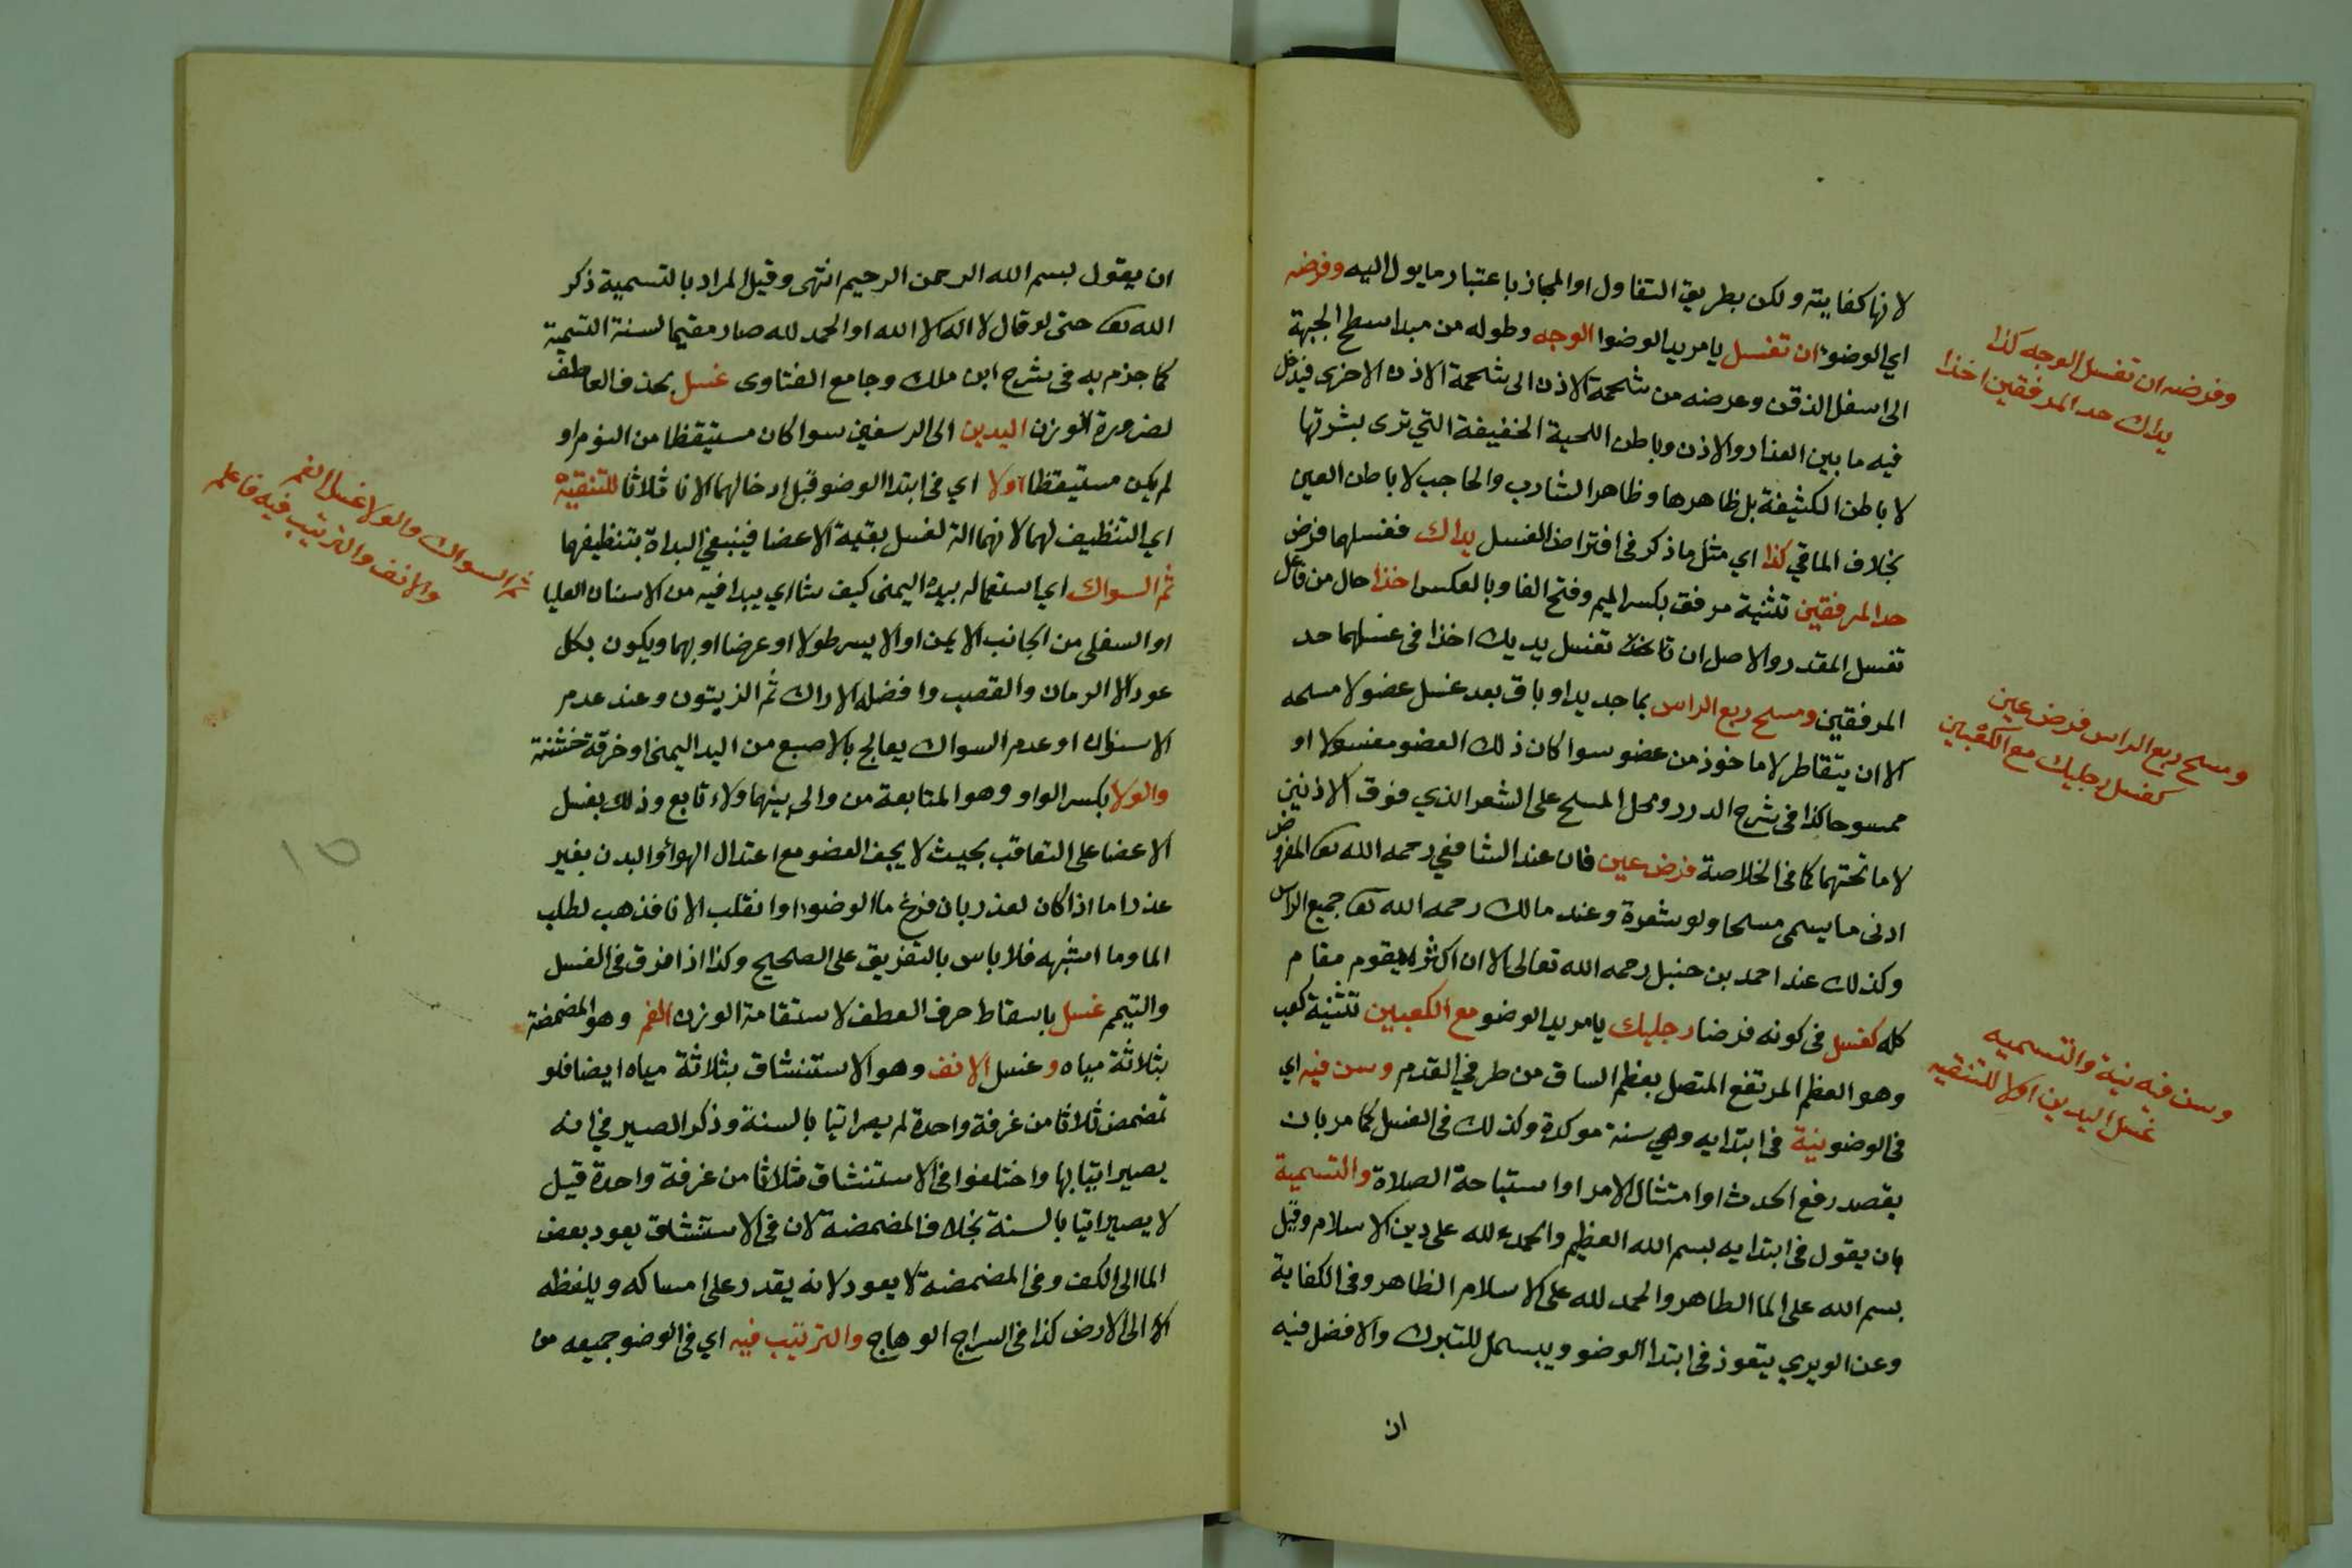 لانها كفايته ولكن بطريق التفاول او المجاز باعتبار ما يول اليه وفرضه
اي الوضوء ان تغسل يا مريد الوضوا الوجه وطوله من مبدا سطح الجبهة
الى اسفل الذقن وعرضه من شحمة الاذن الى شحمة الاذن الاخرى فيدخل
فيه ما بين العذار والاذن وباطن اللحية الخفيفة التي ترى بشرتها
لا باطن الكثيفة بل ظاهرها وظاهر الشارب والحاجب لا باطن العين
بخلاف الماقي كذا اي مثل ما ذكر في افتراض الغسل يداك فغسلها فرض
حد المرفقين تثنية مرفق بكسر الميم وفتح الفا وبالعكس اخذا حال من فاعل
تغسل المقدر والاصل ان تغسل يديك اخذا في غسلهما حد
المرفقين ومسح ربع الراس بما جديد او باق بعد غسل عضو لا مسحه
الا ان يتقاطر لا ماخوذ من عضو سوا كان ذلك العضو مغسولا او
ممسوحا كذا في شرح الدرر ومحل المسح على الشعر الذي فوق الاذنين
لا ما تحتهما كما في الخلاصة فرض عين فان عند الشافعي رحمه الله تعا المفروض
ادنى ما يسمى مسحا ولو شعرة وعند مالك رحمه الله تعا جميع الراس
وكذلك عند احمد بن حنبل رحمه الله تعالى الا ان اكثره يقوم مقام
كله كغسل في كونه فرضا رجليك يا مريد الوضو مع الكعبين تثنية كعب
وهو العظم المرتفع المتصل بعظم الساق من طرفي القدم وسن فيه اي
في الوضو نية في ابتدايه وهي سنة موكدة وكذلك في الغسل كما مر بان
يقصد رفع الحدث او امتثال الامر او استباحة الصلاة والتسمية
بان يقول في ابتدايه بسم الله العظيم والحمد لله على دين الاسلام وقيل
بسم الله على الما الطاهر والحمد لله على الاسلام الظاهر وفي الكفاية
وعن الوبري يتعوذ في ابتدا الوضو ويبسمل للتبرك والافضل فيه
ان
وفرضه ان تغسل الوجه كذا
يداك حد المرفقين اخذا
ومسح ربع الراس فرض عين
كغسل رجليك مع الكعبين
وسن فيه نية والتسميه
غسل اليدين اولا للتنقيه
ان يقول بسم الله الرحمن الرحيم انتهى وقيل المراد بالتسمية ذكر
الله تعا حتى لو قال لا اله الا الله او الحمد لله صار مقيما لسنة التسمية
كما جزم به في شرح ابن ملك وجامع الفتاوى غسل بحذف العاطف
لضرورة الوزن اليدين الى الرسغين سوا كان مستيقظا من النوم او
لم يكن مستيقظا اولا اي في ابتدا الوضو قبل ادخالهما الانا ثلاثا للتنقيه
اي التنظيف لهما لانهما الة لغسل بقية الاعضا فينبغي البداة بتنظيفهما
ثم السواك اي استعماله بيده اليمنى كيف شا اي يبدا فيه من الاسنان العليا
او السفلى من الجانب الايمن او الايسر طولا او عرضا او بهما ويكون بكل
عود الا الرمان والقصب وافضله الاراك ثم الزيتون وعند عدم
الاسنان او عدم السواك يعالج بالاصبع من اليد اليمنى او خرقة خشنة
والولا بكسر الواو وهو المتابعة من والى بينهما ولاء تابع وذلك بغسل
الاعضا على التعاقب بحيث لا يجف العضو مع اعتدال الهوا والبدن بغير
عذر اما اذا كان لعذر بان فرغ ما الوضوء او انقلب الانا فذهب لطلب
الما وما اشبهه فلا باس بالتفريق على الصحيح وكذا اذا فرق في الغسل
والتيمم غسل باسقاط حرف العطف لاستقامة الوزن الفم وهو المضمضة
بثلاثة مياه وغسل الانف وهو الاستنشاق بثلاثة مياه ايضا فلو
تمضمض ثلاثا من غرفة واحدة لم يصر اتيا بالسنة وذكر الصيرفي انه
يصير اتيا بها واختلفوا في الاستنشاق ثلاثا من غرفة واحدة قيل
لا يصير اتيا بالسنة بخلاف المضمضة لان في الاستنشاق يعود بعض
الما الى الكف وفي المضمضة لا يعود لانه يقدر على امساكه ويلفظه
الى الارض كذا في السراج الوهاج والترتيب فيه اي في الوضو جميعه
ثم السواك والولا غسل الفم
والانف والترتيب فيه فاعلم
١٥